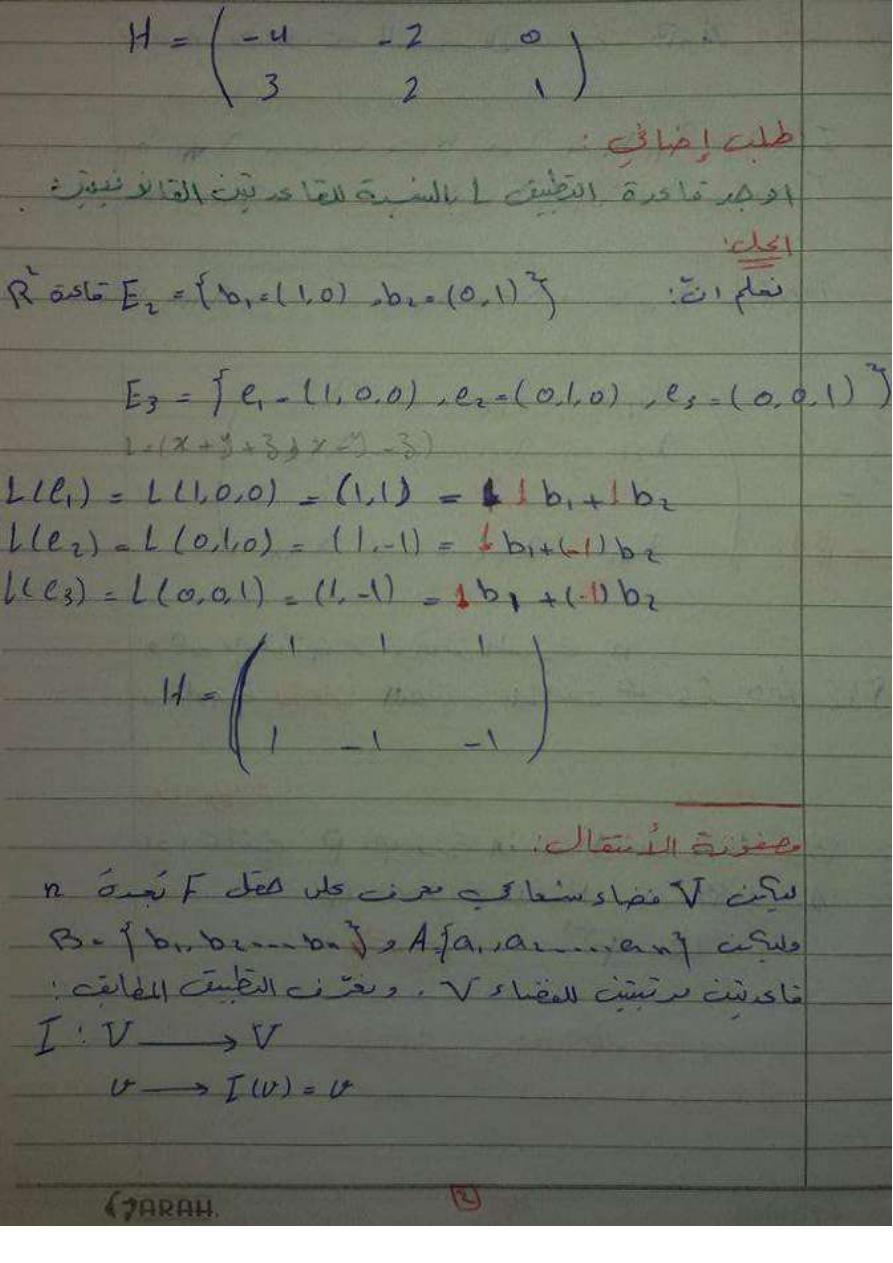 H = ( -4 -2 0
3 2 1 )
طلب إضافي :
اوجد قاعدة التطبيق L بالنسبة للقاعدتين القانونيتين :
الحل:
نعلم انّ: E₂ = {b₁=(1,0) , b₂=(0,1)} قاعدة R²
E₃ = {e₁=(1,0,0) , e₂=(0,1,0) , e₃=(0,0,1)}
L(e₁) = L(1,0,0) = (1,1) = 1 b₁ + 1 b₂
L(e₂) = L(0,1,0) = (1,-1) = 1 b₁ + (-1) b₂
L(e₃) = L(0,0,1) = (1,-1) = 1 b₁ + (-1) b₂
H = ( 1 1 1
1 -1 -1 )
مصفوفة الأنتقال:
ليكن V فضاء شعاعي معرف على حقل F بُعدهُ n
وليكن A={a₁,a₂,...,aₙ} و B={b₁,b₂...bₙ}
قاعدتين مرتبتين للفضاء V . ونعرّف التطبيق المطابق :
I : V ⟶ V
v ⟶ I(v) = v
2